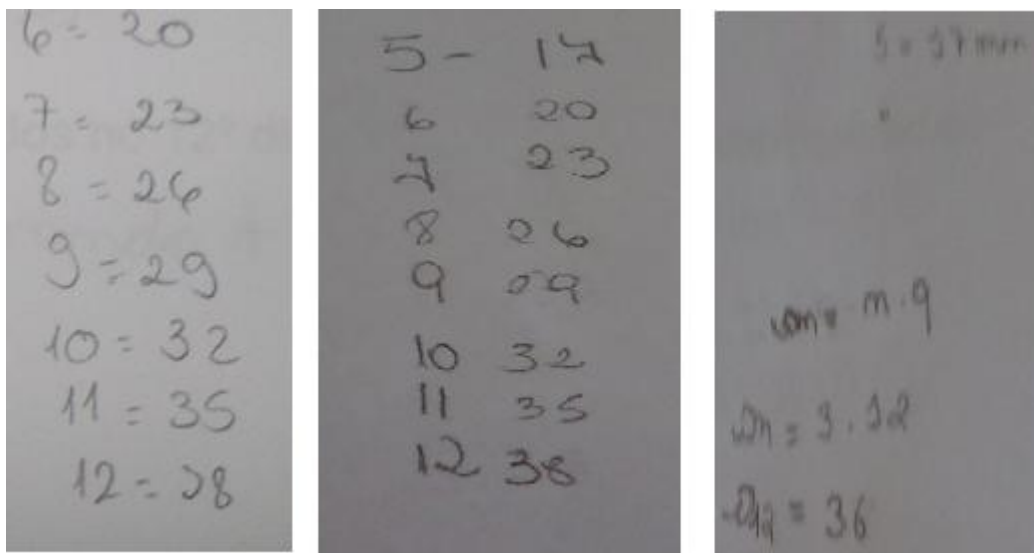 6 = 20
7 = 23
8 = 26
9 = 29
10 = 32
11 = 35
12 = 38
5 - 17
6 20
7 23
8 26
9 29
10 32
11 35
12 38
5 = 17 mm
an = n . q
an = 3 . 12
= 36